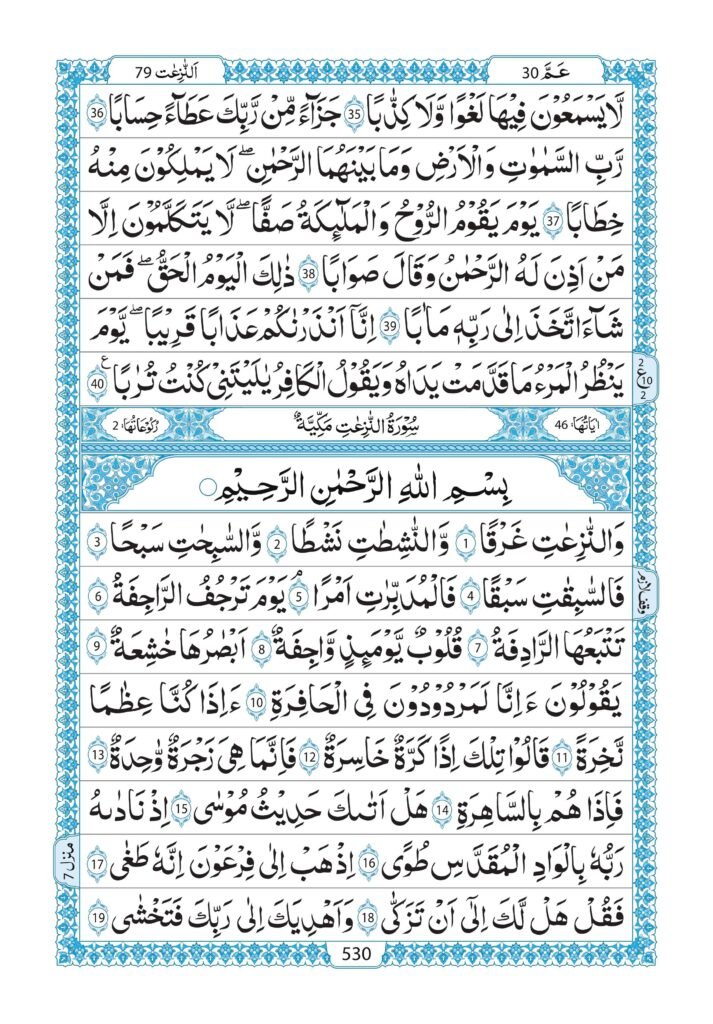 عَمَّ 30
اَلنّٰزِعٰت 79
لَا يَسْمَعُوْنَ فِيْهَا لَغْوًا وَّلَا كِذّٰبًا 35 جَزَآءً مِّنْ رَّبِّكَ عَطَآءً حِسَابًا 36
رَّبِّ السَّمٰوٰتِ وَالْاَرْضِ وَمَا بَيْنَهُمَا الرَّحْمٰنِ ۖ لَا يَمْلِكُوْنَ مِنْهُ
خِطَابًا 37 يَوْمَ يَقُوْمُ الرُّوْحُ وَالْمَلٰٓئِكَةُ صَفًّا ۖ لَّا يَتَكَلَّمُوْنَ اِلَّا
مَنْ اَذِنَ لَهُ الرَّحْمٰنُ وَقَالَ صَوَابًا 38 ذٰلِكَ الْيَوْمُ الْحَقُّ ۖ فَمَنْ
شَآءَ اتَّخَذَ اِلٰى رَبِّهٖ مَاٰبًا 39 اِنَّآ اَنْذَرْنٰكُمْ عَذَابًا قَرِيْبًا ۖ يَّوْمَ
يَنْظُرُ الْمَرْءُ مَا قَدَّمَتْ يَدَاهُ وَيَقُوْلُ الْكَافِرُ يٰلَيْتَنِىْ كُنْتُ تُرٰبًا 40 ع
2 ع 10 2
اٰيَاتُهَا: 46
سُوْرَةُ النّٰزِعٰتِ مَكِّيَّةٌ
رُكُوْعَاتُهَا: 2
بِسْمِ اللّٰهِ الرَّحْمٰنِ الرَّحِيْمِ
وَالنّٰزِعٰتِ غَرْقًا 1 وَّالنّٰشِطٰتِ نَشْطًا 2 وَّالسّٰبِحٰتِ سَبْحًا 3
فَالسّٰبِقٰتِ سَبْقًا 4 فَالْمُدَبِّرٰتِ اَمْرًا ۘ 5 يَوْمَ تَرْجُفُ الرَّاجِفَةُ 6
وقف لازم
تَتْبَعُهَا الرَّادِفَةُ 7 قُلُوْبٌ يَّوْمَئِذٍ وَّاجِفَةٌ 8 اَبْصَارُهَا خٰشِعَةٌ 9
يَقُوْلُوْنَ ءَاِنَّا لَمَرْدُوْدُوْنَ فِى الْحَافِرَةِ 10 ءَاِذَا كُنَّا عِظٰمًا
نَّخِرَةً 11 قَالُوْا تِلْكَ اِذًا كَرَّةٌ خَاسِرَةٌ 12 فَاِنَّمَا هِىَ زَجْرَةٌ وّٰحِدَةٌ 13
فَاِذَا هُمْ بِالسَّاهِرَةِ 14 هَلْ اَتٰىكَ حَدِيْثُ مُوْسٰى 15 اِذْ نَادٰىهُ
رَبُّهٗ بِالْوَادِ الْمُقَدَّسِ طُوًى 16 اِذْهَبْ اِلٰى فِرْعَوْنَ اِنَّهٗ طَغٰى 17
منزل 7
فَقُلْ هَلْ لَّكَ اِلٰٓى اَنْ تَزَكّٰى 18 وَاَهْدِيَكَ اِلٰى رَبِّكَ فَتَخْشٰى 19
530